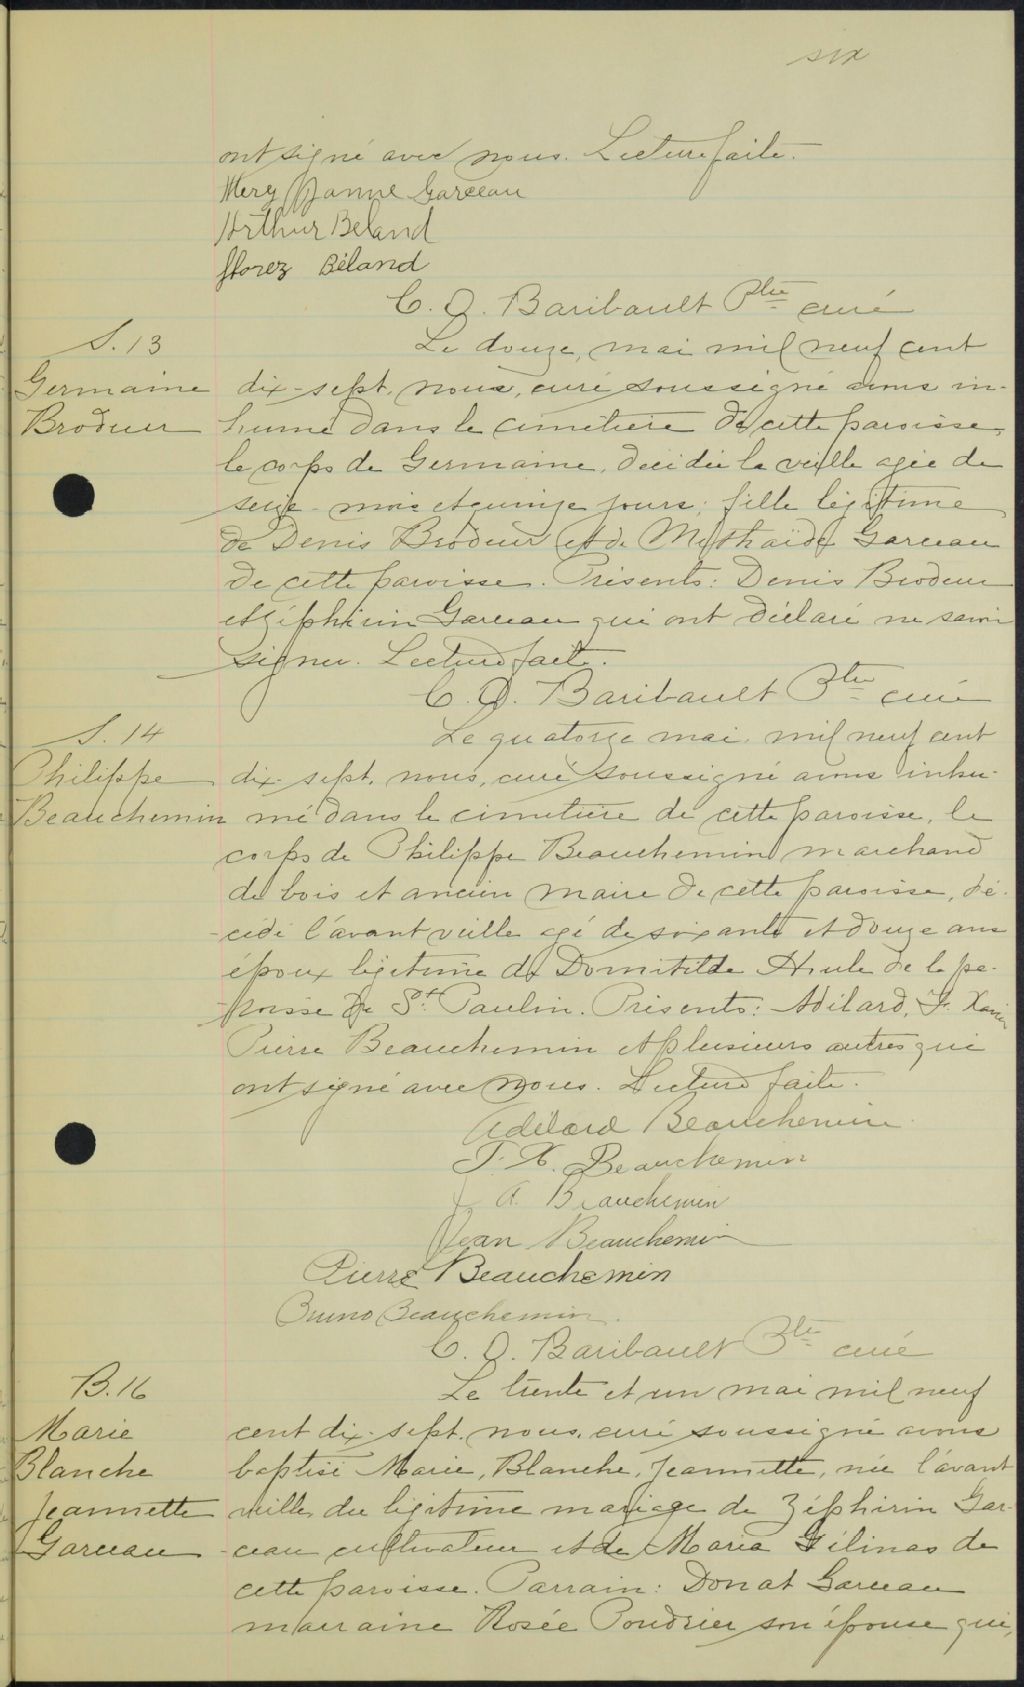 six
ont signé avec nous. Lecture faite.
Mery Janne Garceau
Arthur Beland
Béland
C. O. Baribault Ptre curé
S. 13
Le douze, mai mil neuf cent
Germaine
dix-sept, nous, curé soussigné avons in-
Brodeur
humé dans le cimetière de cette paroisse,
le corps de Germaine, décédée la veille agée de
seize mois et quinze jours; fille légitime
de Denis Brodeur et de Garceau
de cette paroisse. Présents: Denis Brodeur
et Zéphirin Garceau qui ont déclaré ne savoir
signer. Lecture faite.
C. O. Baribault Ptre curé
S. 14
Le quatorze mai mil neuf cent
Philippe
dix-sept, nous, curé soussigné avons inhu-
Beauchemin
mé dans le cimetière de cette paroisse, le
corps de Philippe Beauchemin marchand
de bois et ancien maire de cette paroisse, dé-
cédé l'avant veille agé de soixante et douze ans
époux légitime de Domitilde de la pa-
roisse de St. Paulin. Présents: Adélard, F. Xavier
Pierre Beauchemin et plusieurs autres qui
ont signé avec nous. Lecture faite.
Adélard Beauchemin
F. X. Beauchemin
A. Beauchemin
Jean Beauchemin
Pierre Beauchemin
Bruno Beauchemin.
C. O. Baribault Ptre curé
B. 16
Le trente et un mai mil neuf
Marie
cent dix-sept, nous, curé soussigné avons
Blanche
baptisé Marie, Blanche, Jeannette, née l'avant
Jeannette
veille du légitime mariage de Zéphirin Gar-
Garceau
ceau cultivateur et de Maria Gélinas de
cette paroisse. Parrain: Donat Garceau
marraine Rosée Poudrier son épouse qui,